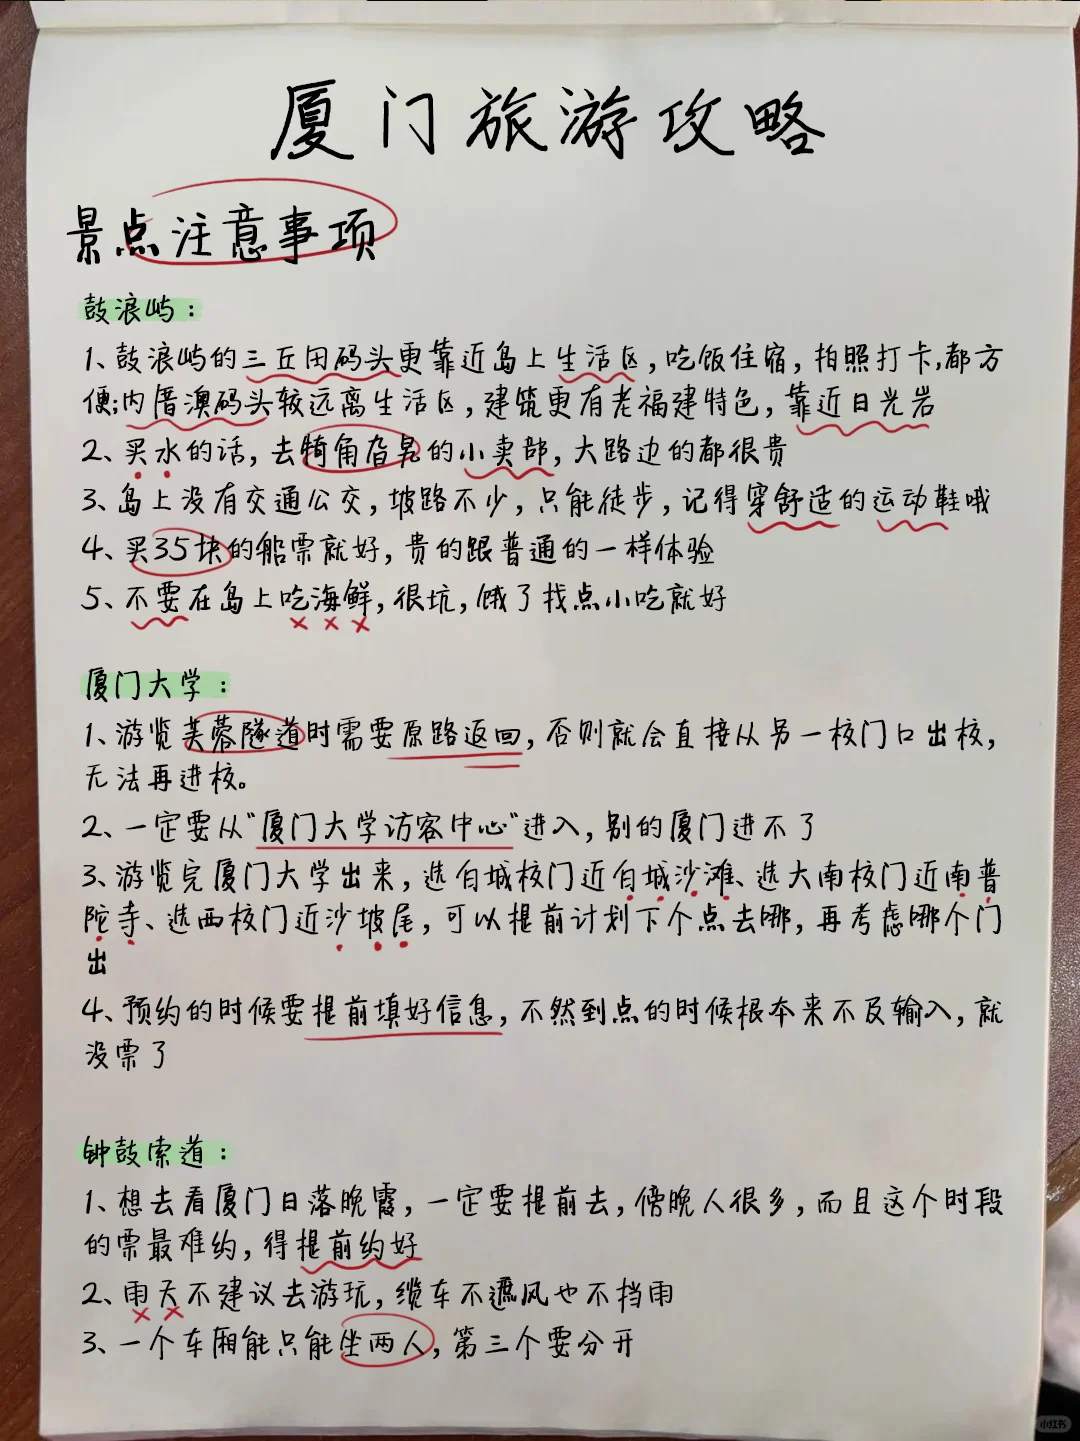 厦门旅游攻略
景点注意事项
鼓浪屿：
1、鼓浪屿的三丘田码头更靠近岛上生活区，吃饭住宿，拍照打卡，都方
便；内厝澳码头较远离生活区，建筑更有老福建特色，靠近日光岩
2、买水的话，去犄角旮旯的小卖部，大路边的都很贵
3、岛上没有交通公交，坡路不少，只能徒步，记得穿舒适的运动鞋哦
4、买35块的船票就好，贵的跟普通的一样体验
5、不要在岛上吃海鲜，很坑，饿了找点小吃就好
厦门大学：
1、游览芙蓉隧道时需要原路返回，否则就会直接从另一校门口出校，
无法再进校。
2、一定要从“厦门大学访客中心”进入，别的厦门进不了
3、游览完厦门大学出来，选白城校门近白城沙滩、选大南校门近南普
陀寺、选西校门近沙坡尾，可以提前计划下个点去哪，再考虑哪个门
出
4、预约的时候要提前填好信息，不然到点的时候根本来不及输入，就
没票了
钟鼓索道：
1、想去看厦门日落晚霞，一定要提前去，傍晚人很多，而且这个时段
的票最难约，得提前约好
2、雨天不建议去游玩，缆车不遮风也不挡雨
3、一个车厢能只能坐两人，第三个要分开
小红书